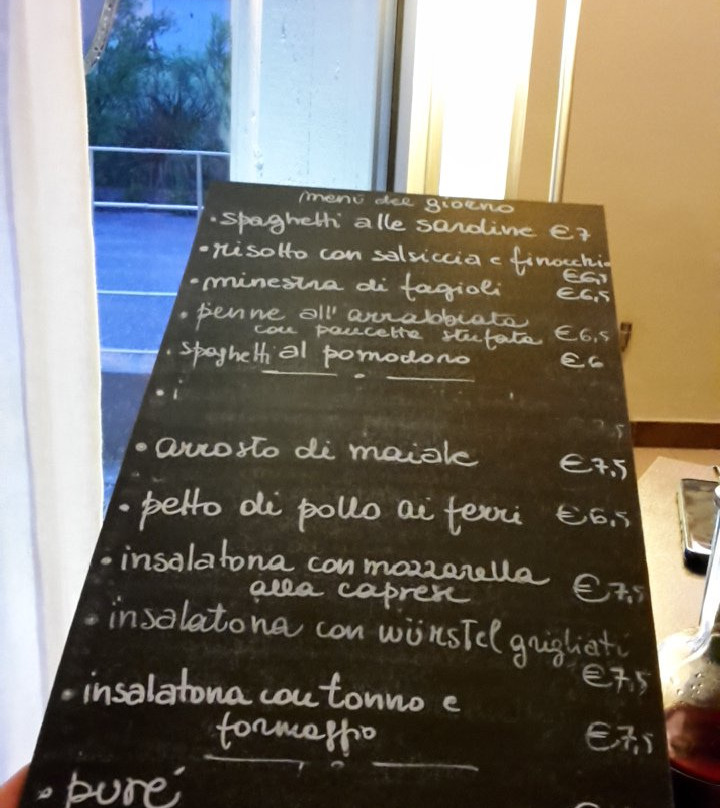 menù del giorno
• spaghetti alle sardine €7
• risotto con salsiccia e finocchio
€6,5
• minestra di fagioli €6,5
• penne all' arrabbiata
con pancetta stufata €6,5
• spaghetti al pomodoro €6
• i
• arrosto di maiale €7,5
• petto di pollo ai ferri €6,5
• insalatona con mozzarella
alla caprese €7,5
• insalatona con würstel grigliati
€7,5
• insalatona con tonno e
formaggio €7,5
• puré